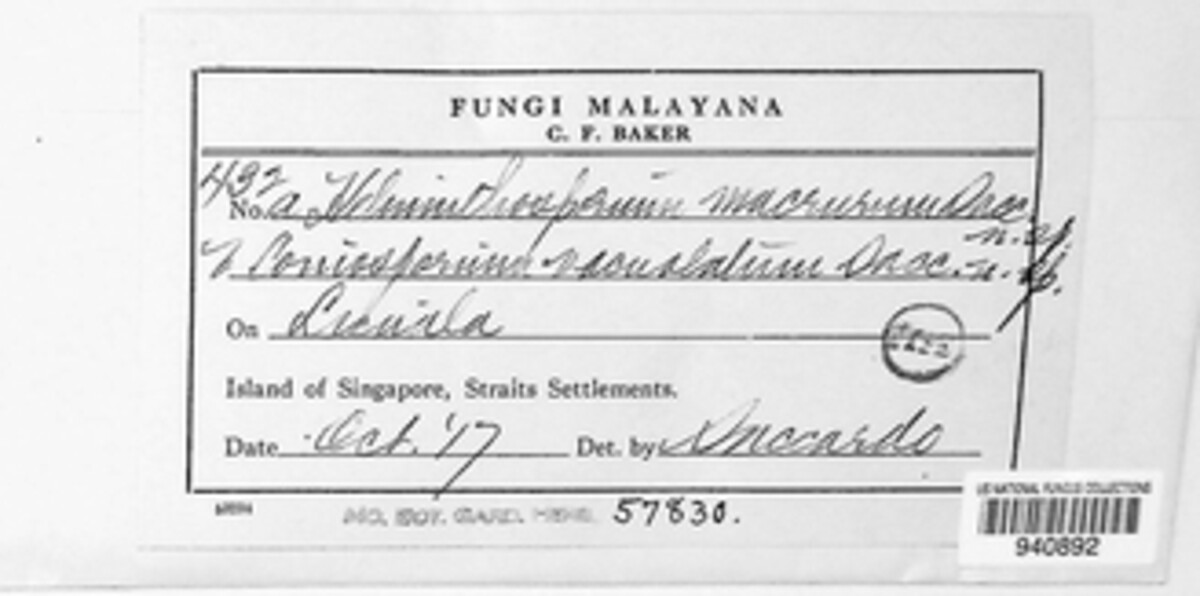 FUNGI MALAYANA
C. F. BAKER
No. 432 a Helminthosporium macrurum Sacc.
n. sp.
b Coniosporium vaculatum Sacc. n. sp.
On Licuala
Island of Singapore, Straits Settlements.
Date Oct. '17 Det. by Saccardo
MO. BOT. GARD. HERB. 57830.
US NATIONAL FUNGUS COLLECTIONS
940892